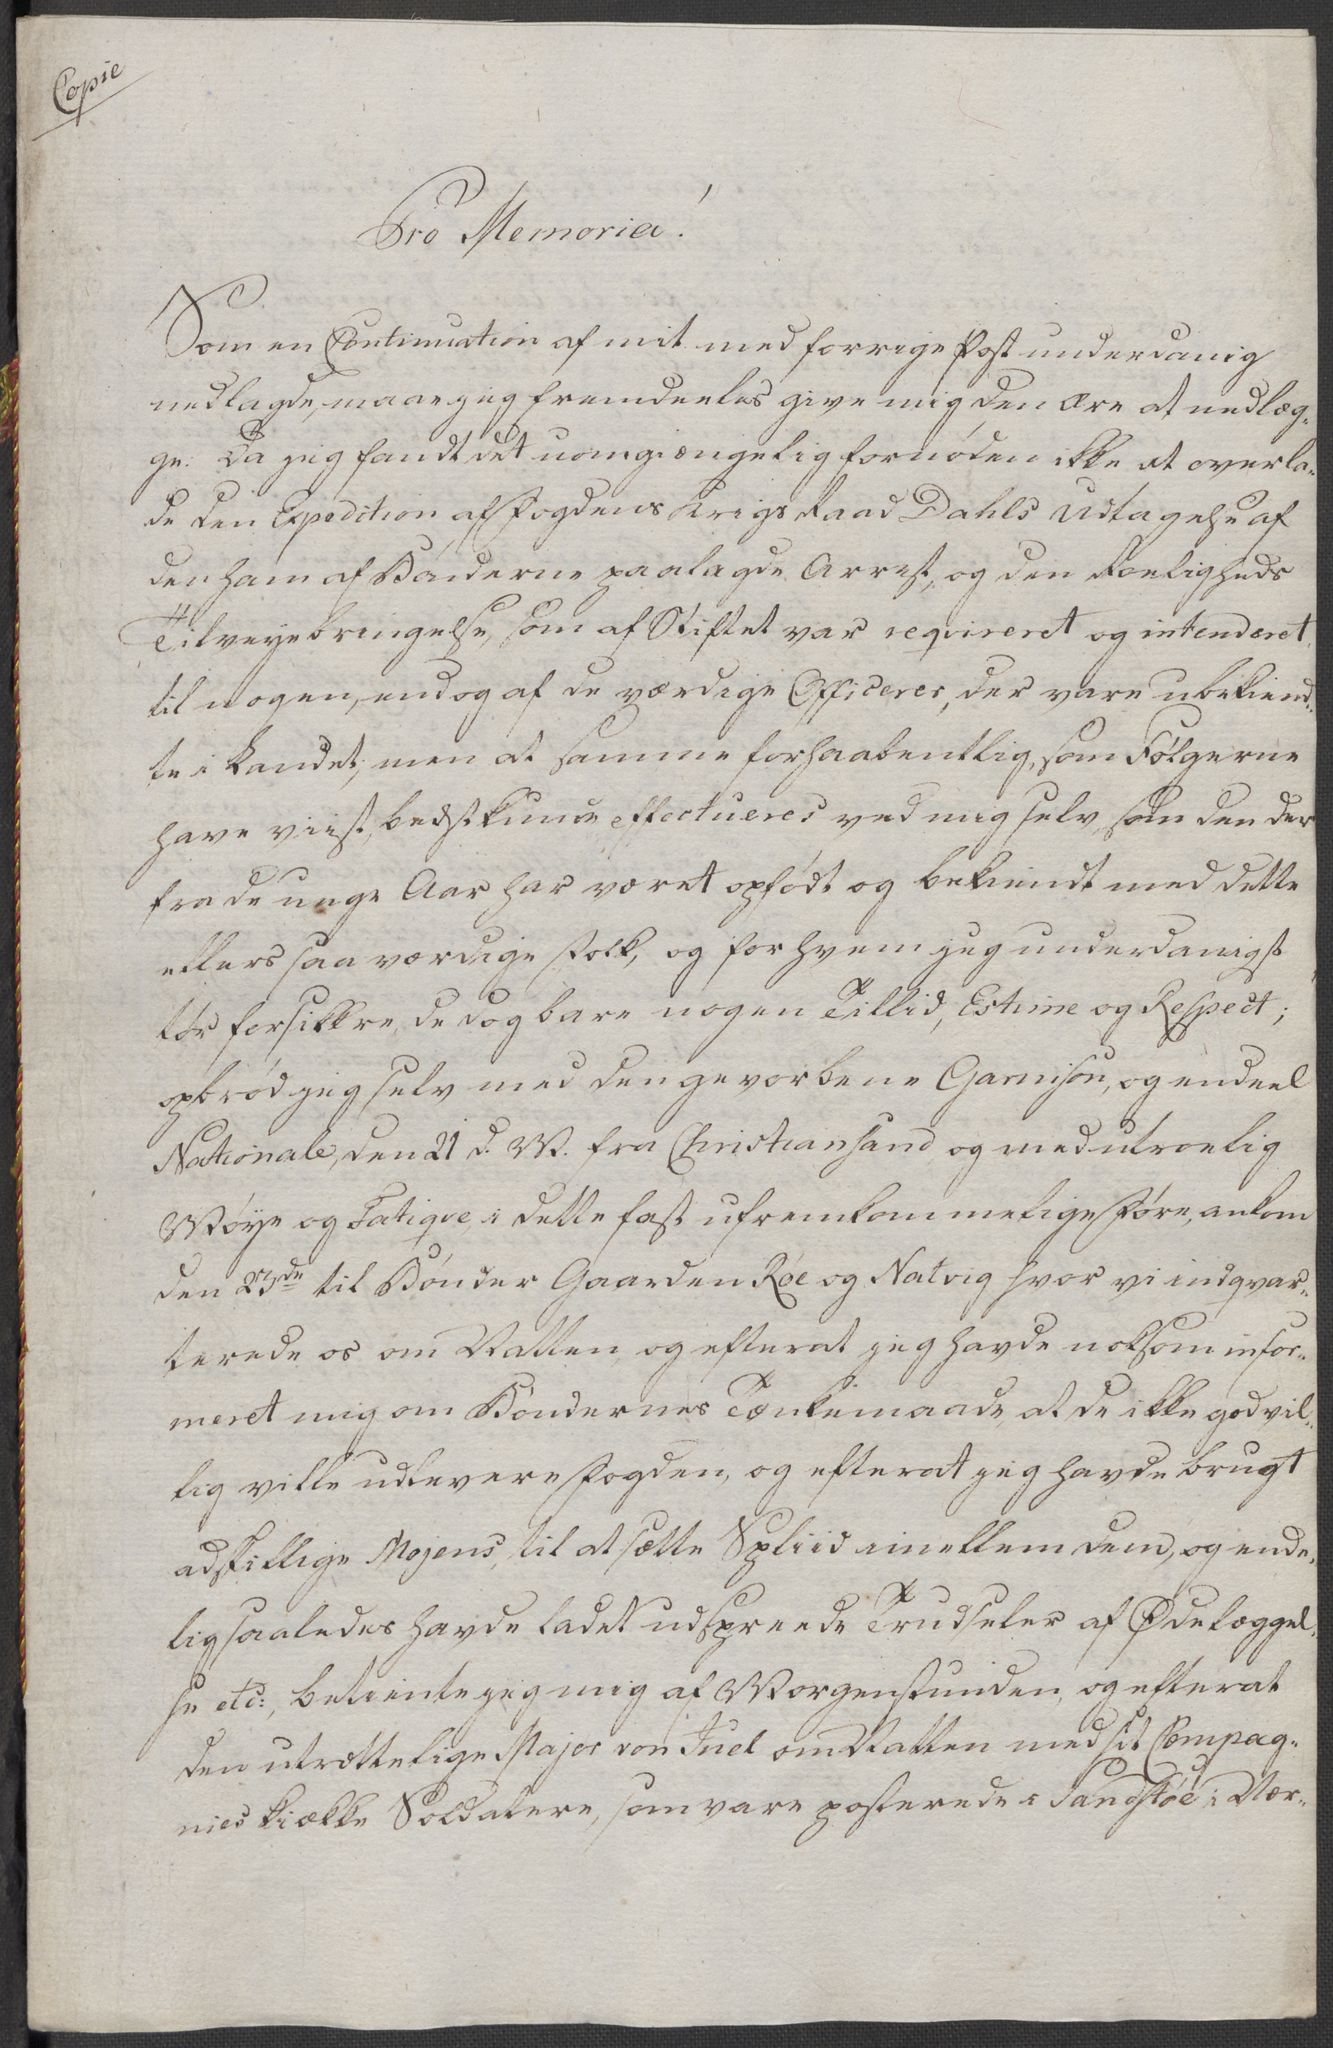 Copie
Pro Memoria!
Som en Continuation af mit med forrige Post underdanig
nedlagde, maae jeg fremdeeles give mig den Ære at nedlæg„
ge: Da jeg fandt det uomgiængelig fornøden ikke at overla„
de den Expedition af Fogdens Krigs Raad Dahls Udtagelse af
den ham af Bønderne paalagde Arrest, og den Roeligheds
Tilveyebringelse, som af Stiftet var reqvireret og intenderet,
til nogen, endog af de værdige Officerer, der vare ubekiend„
te i Landet, men at samme forhaabentlig, som Følgerne
have viist, bedst kunde effectueres ved mig selv, som den der
fra de unge Aar har været opfødt og bekiendt med dette
ellers saa værdige Folk, og for hvem jeg underdanigst
tør forsikkre, de dog bare nogen Tillid, Estime og Respect;
opbrød jeg selv med den gevorbene Garnison, og endeel
Nationale, den 21 d. M. fra Christiansand og med utroelig
Møye og Fatiqve, i dette fast ufremkommelige Føre, ankom
den 23de til Bønder Gaarden Røe og Natvig hvor vi indqvar„
terede os om Natten, og efterat jeg havde noksom infor„
meret mig om Bøndernes Tænkemaade, at de ikke godvil„
lig ville udlevere Fogden, og efterat jeg havde brugt
adskillige Mojens, til at sætte Spliid imellem dem, og ende„
lig saaledes havde ladet udspreede Trudseler af Ødelæggel„
se etc:, betiente jeg mig af Morgenstunden, og efterat
den utrættelige Major von Juel om Natten med sit Compag„
nies kiække Soldatere, som vare posterede i Sandstøe i Nær„